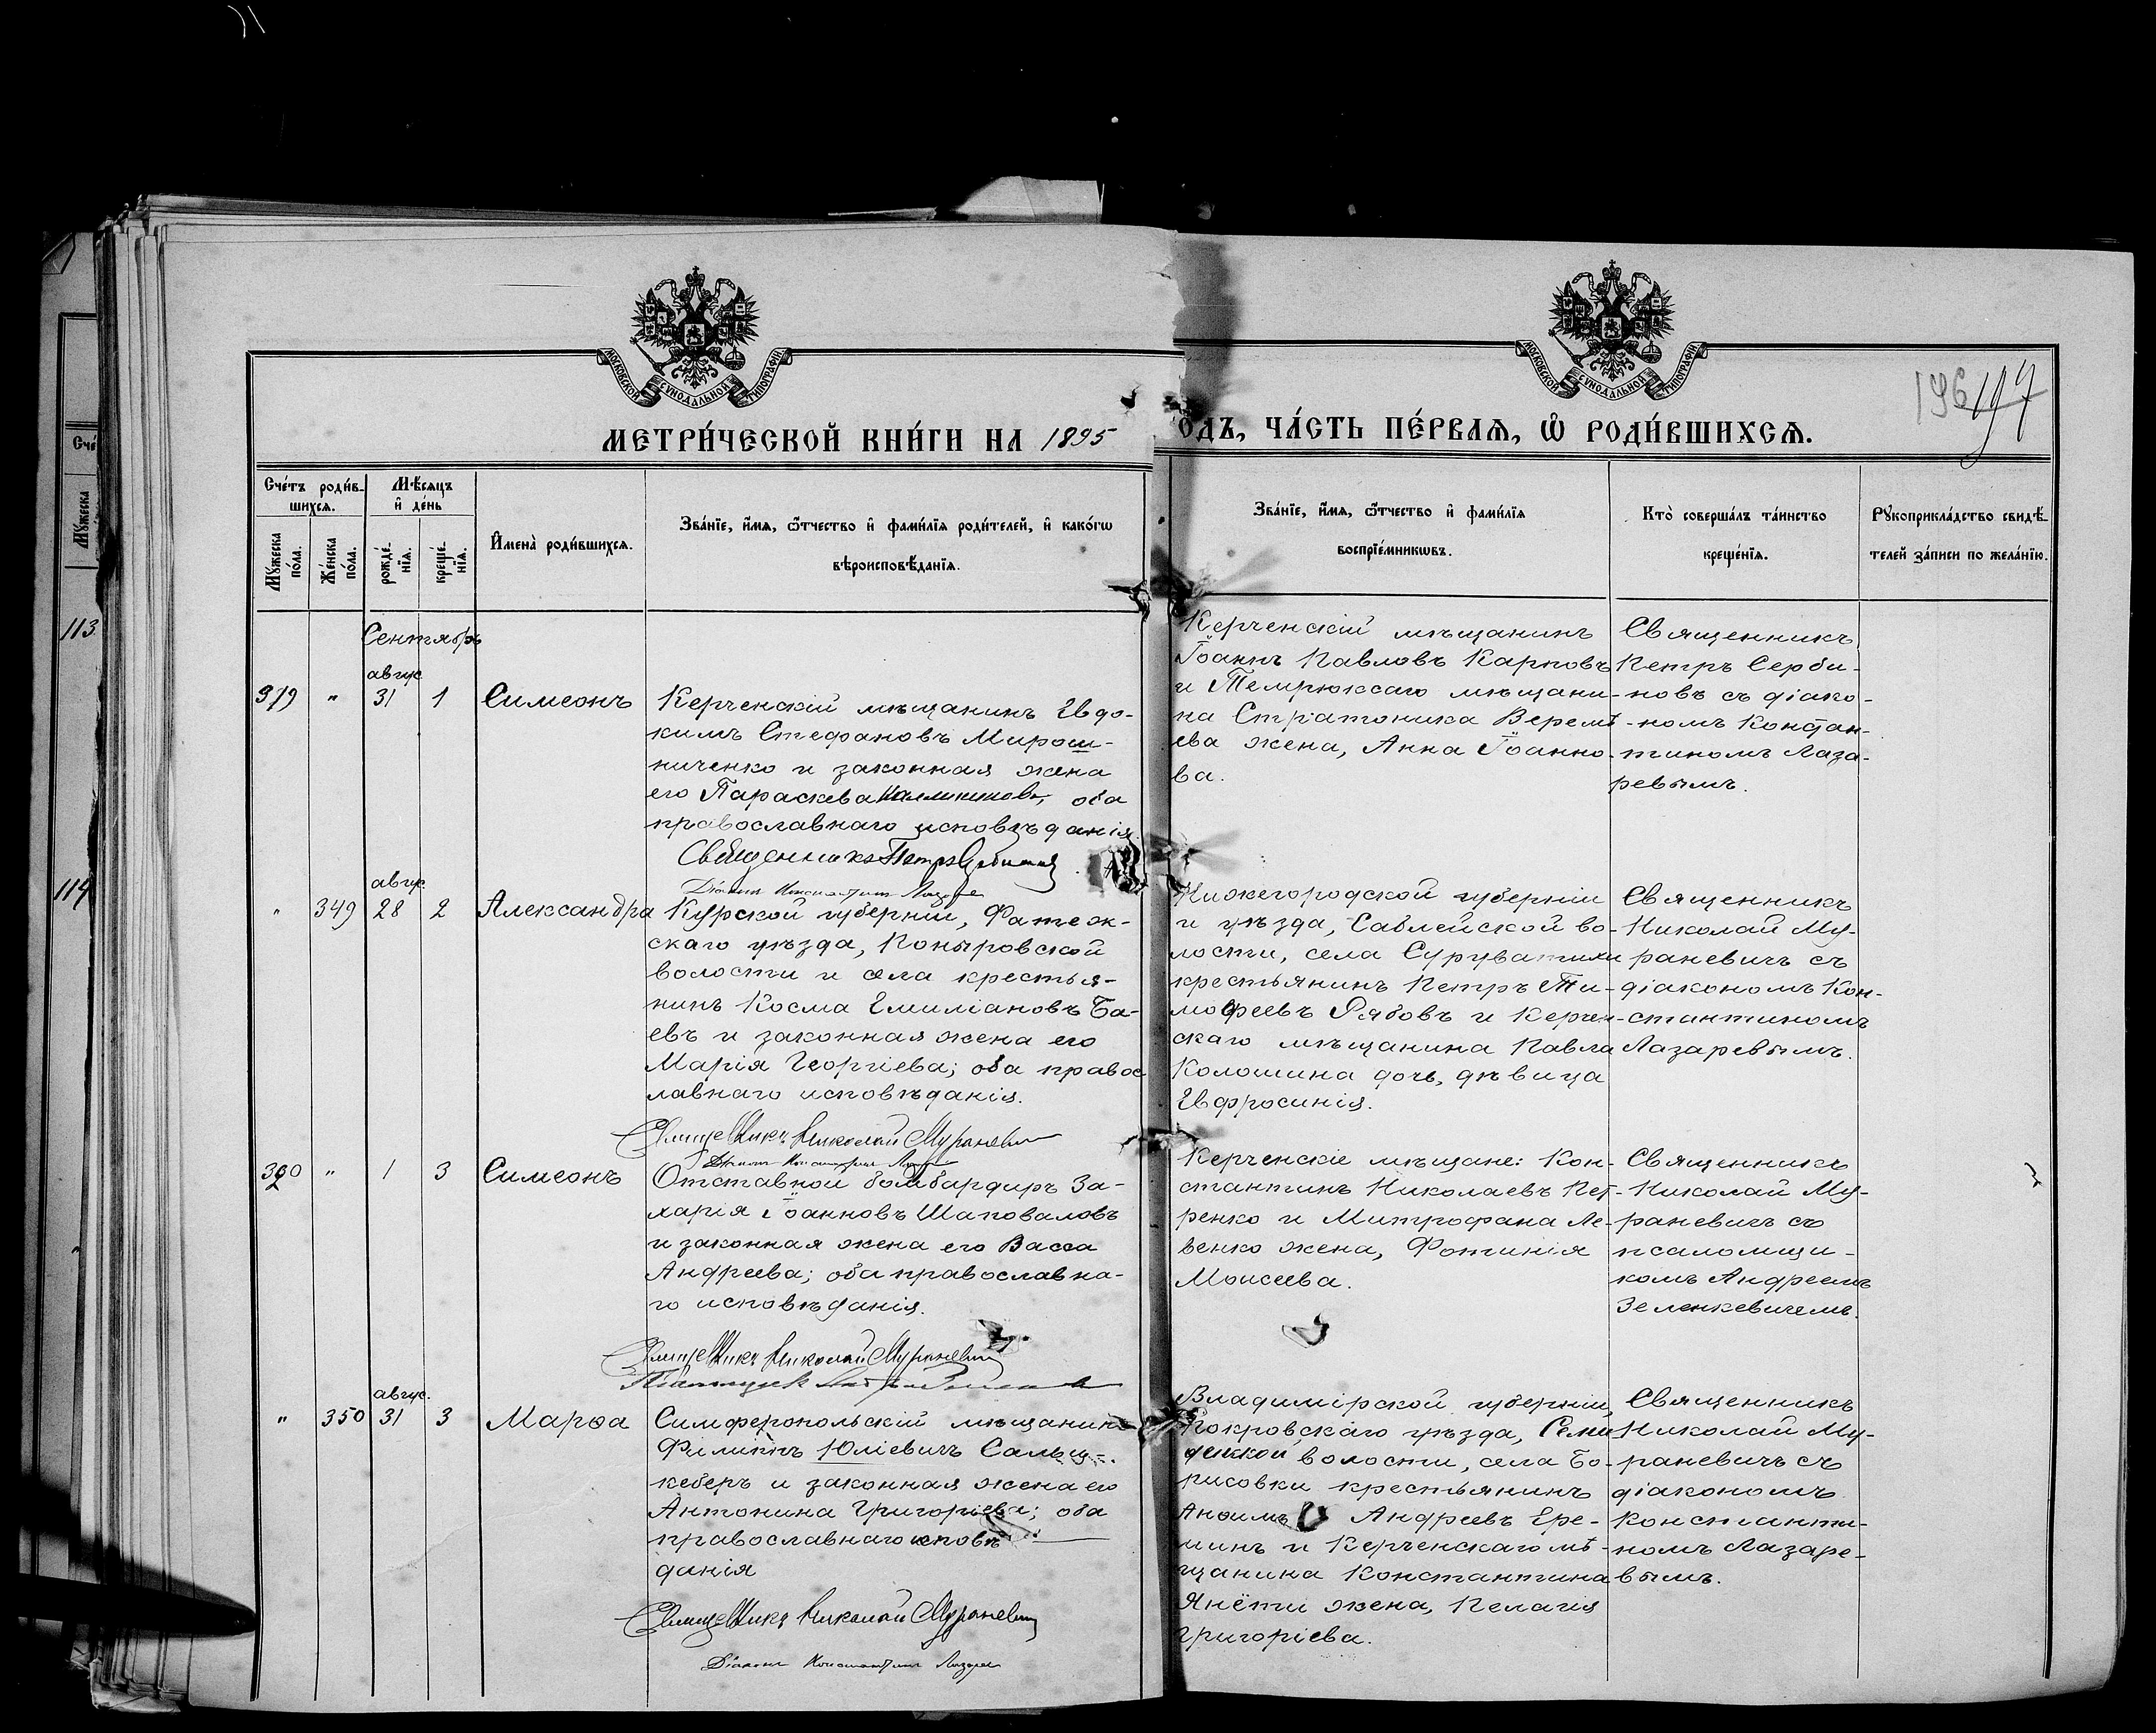 МОСКОВСКОЙ СѴНОДАЛЬНОЙ ТИПОГРАФІИ
МОСКОВСКОЙ СѴНОДАЛЬНОЙ ТИПОГРАФІИ
196 197
МЕТРИ́ЧЕСКОЙ КНИ́ГИ НА 1895
ОДЪ, ЧА́СТЬ ПЕ́РВАѦ, Ѡ РОДИ́ВШИХСѦ.
Сче́тъ роди́в-
шихсѧ.
Мꙋ́жеска по́ла.
Же́нска по́ла.
Мѣ́сѧцъ
и҆ де́нь
рожде́-нїѧ.
креще́-нїѧ.
И҆мена̀ роди́вшихсѧ.
Зва́нїе, и҆́мѧ, ѻ҆́тчество и҆ фами́лїѧ роди́телей, и҆ како́гѡ
вѣроисповѣ́данїѧ.
Зва́нїе, и҆́мѧ, ѻ҆́тчество и҆ фами́лїѧ
воспрїе́мникѡвъ.
Кто̀ соверша́лъ та́инство
креще́нїѧ.
Рꙋкоприкла́дство свидѣ́-
телей за́писи по жела́нїю.
113
114
Сентябрь
авгус
319 " 31 1 Симеонъ
Керченскій мѣщанинъ Евдо-
кимъ Стефановъ Мирош-
ниченко и законная жена
его Параскева оба
православнаго исповѣданія.
Священникъ Петръ
Керченскій мѣщанинъ
Іоаннъ Павловъ Карповъ
и Темрюкскаго мѣщани-
на Стратоника Веремѣ-
ева жена, Анна Іоанно-
ва.
Священникъ
Петръ Серби-
новъ съ діако-
номъ Констан-
тиномъ Лаза-
ревымъ.
Діаконъ Константинъ Лазаревъ
авгус.
" 349 28 2 Александра
Курской губерніи, Фатеж-
скаго уѣзда, Коныровской
волости и села крестья-
нинъ Косма Емиліановъ Ба-
евъ и законная жена его
Марія Георгіева; оба правос
лавнаго исповѣданія.
Священникъ Николай Мураневичъ
Діаконъ Константинъ Лазаревъ
Нижегородской губерніи
и уѣзда, Саблейской во-
лости, села Суруватихи
крестьянинъ Петръ Ти-
мофеевъ Рябовъ и Керчен-
скаго мѣщанина Павла
Коломина дочь, дѣвица
Евфросинія.
Священникъ
Николай Му-
раневичъ съ
діакономъ Кон-
стантиномъ
Лазаревымъ.
320 " 1 3 Симеонъ
Отставной бомбардиръ За-
харія Іоанновъ Шаповаловъ
и законная жена его Васса
Андреева; оба православна-
го исповѣданія.
Священникъ Николай Мураневичъ
Керченскіе мѣщане: Кон-
стантинъ Николаевъ Пет-
ренко и Митрофана Ле-
венко жена, Фотинія
Моисеева.
Священникъ
Николай Му-
раневичъ съ
псаломщи-
комъ Андреемъ
Зеленкевичемъ.
авгус.
" 350 31 3 Марѳа
Симферопольскій мѣщанинъ
Филиппъ Юліевичъ
кеберъ и законная жена его
Антонина Григоріева; оба
православнаго исповѣ
данія
Священникъ Николай Мураневичъ
Діаконъ Константинъ Лазаревъ
Владимірской губерніи,
Покровскаго уѣзда,
волости, села Бо-
рисовки крестьянинъ
Андреевъ Ере-
минъ и Керченскаго мѣ-
щанина Константина
Янёти жена, Пелагія
Григоріева.
Священникъ
Николай Му-
раневичъ съ
діакономъ
Константи-
номъ Лазаре-
вымъ.